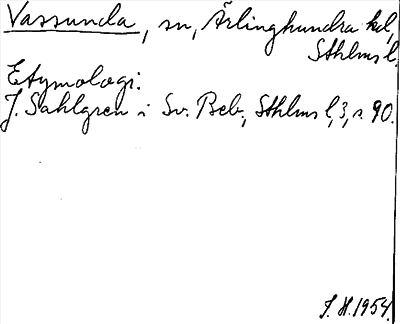 Vassunda, sn, Ärlinghundra hd,
Sthlms l.
Etymologi:
J. Sahlgren i Sv. Beb., Sthlms l, 3, s. 90.
J. H. 1954.